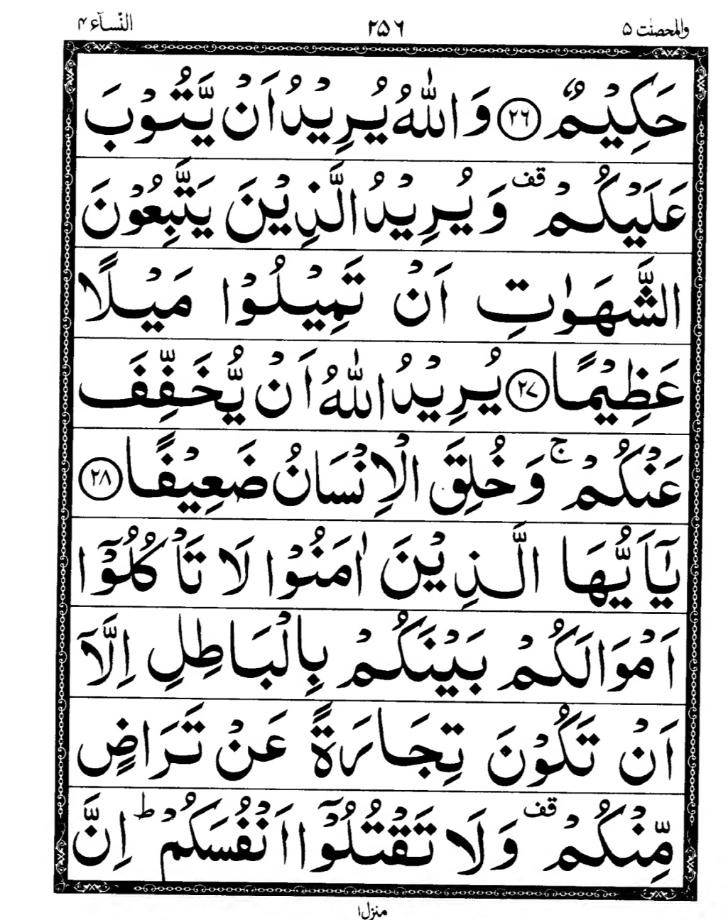 والمحصنت ۵ ۲۵۶ النّسآء ۴
حَكِيْمٌ ﴿۲۶﴾ وَاللّٰهُ يُرِيْدُ اَنْ يَّتُوْبَ
عَلَيْكُمْ ۫ قف وَيُرِيْدُ الَّذِيْنَ يَتَّبِعُوْنَ
الشَّهَوٰتِ اَنْ تَمِيْلُوْا مَيْلًا
عَظِيْمًا ﴿۲۷﴾ يُرِيْدُ اللّٰهُ اَنْ يُّخَفِّفَ
عَنْكُمْ ۚ وَخُلِقَ الْاِنْسَانُ ضَعِيْفًا ﴿۲۸﴾
يٰۤاَيُّهَا الَّذِيْنَ اٰمَنُوْا لَا تَاْكُلُوْۤا
اَمْوَالَكُمْ بَيْنَكُمْ بِالْبَاطِلِ اِلَّاۤ
اَنْ تَكُوْنَ تِجَارَةً عَنْ تَرَاضٍ
مِّنْكُمْ قف وَلَا تَقْتُلُوْۤا اَنْفُسَكُمْ ؕ اِنَّ
منزل ۱